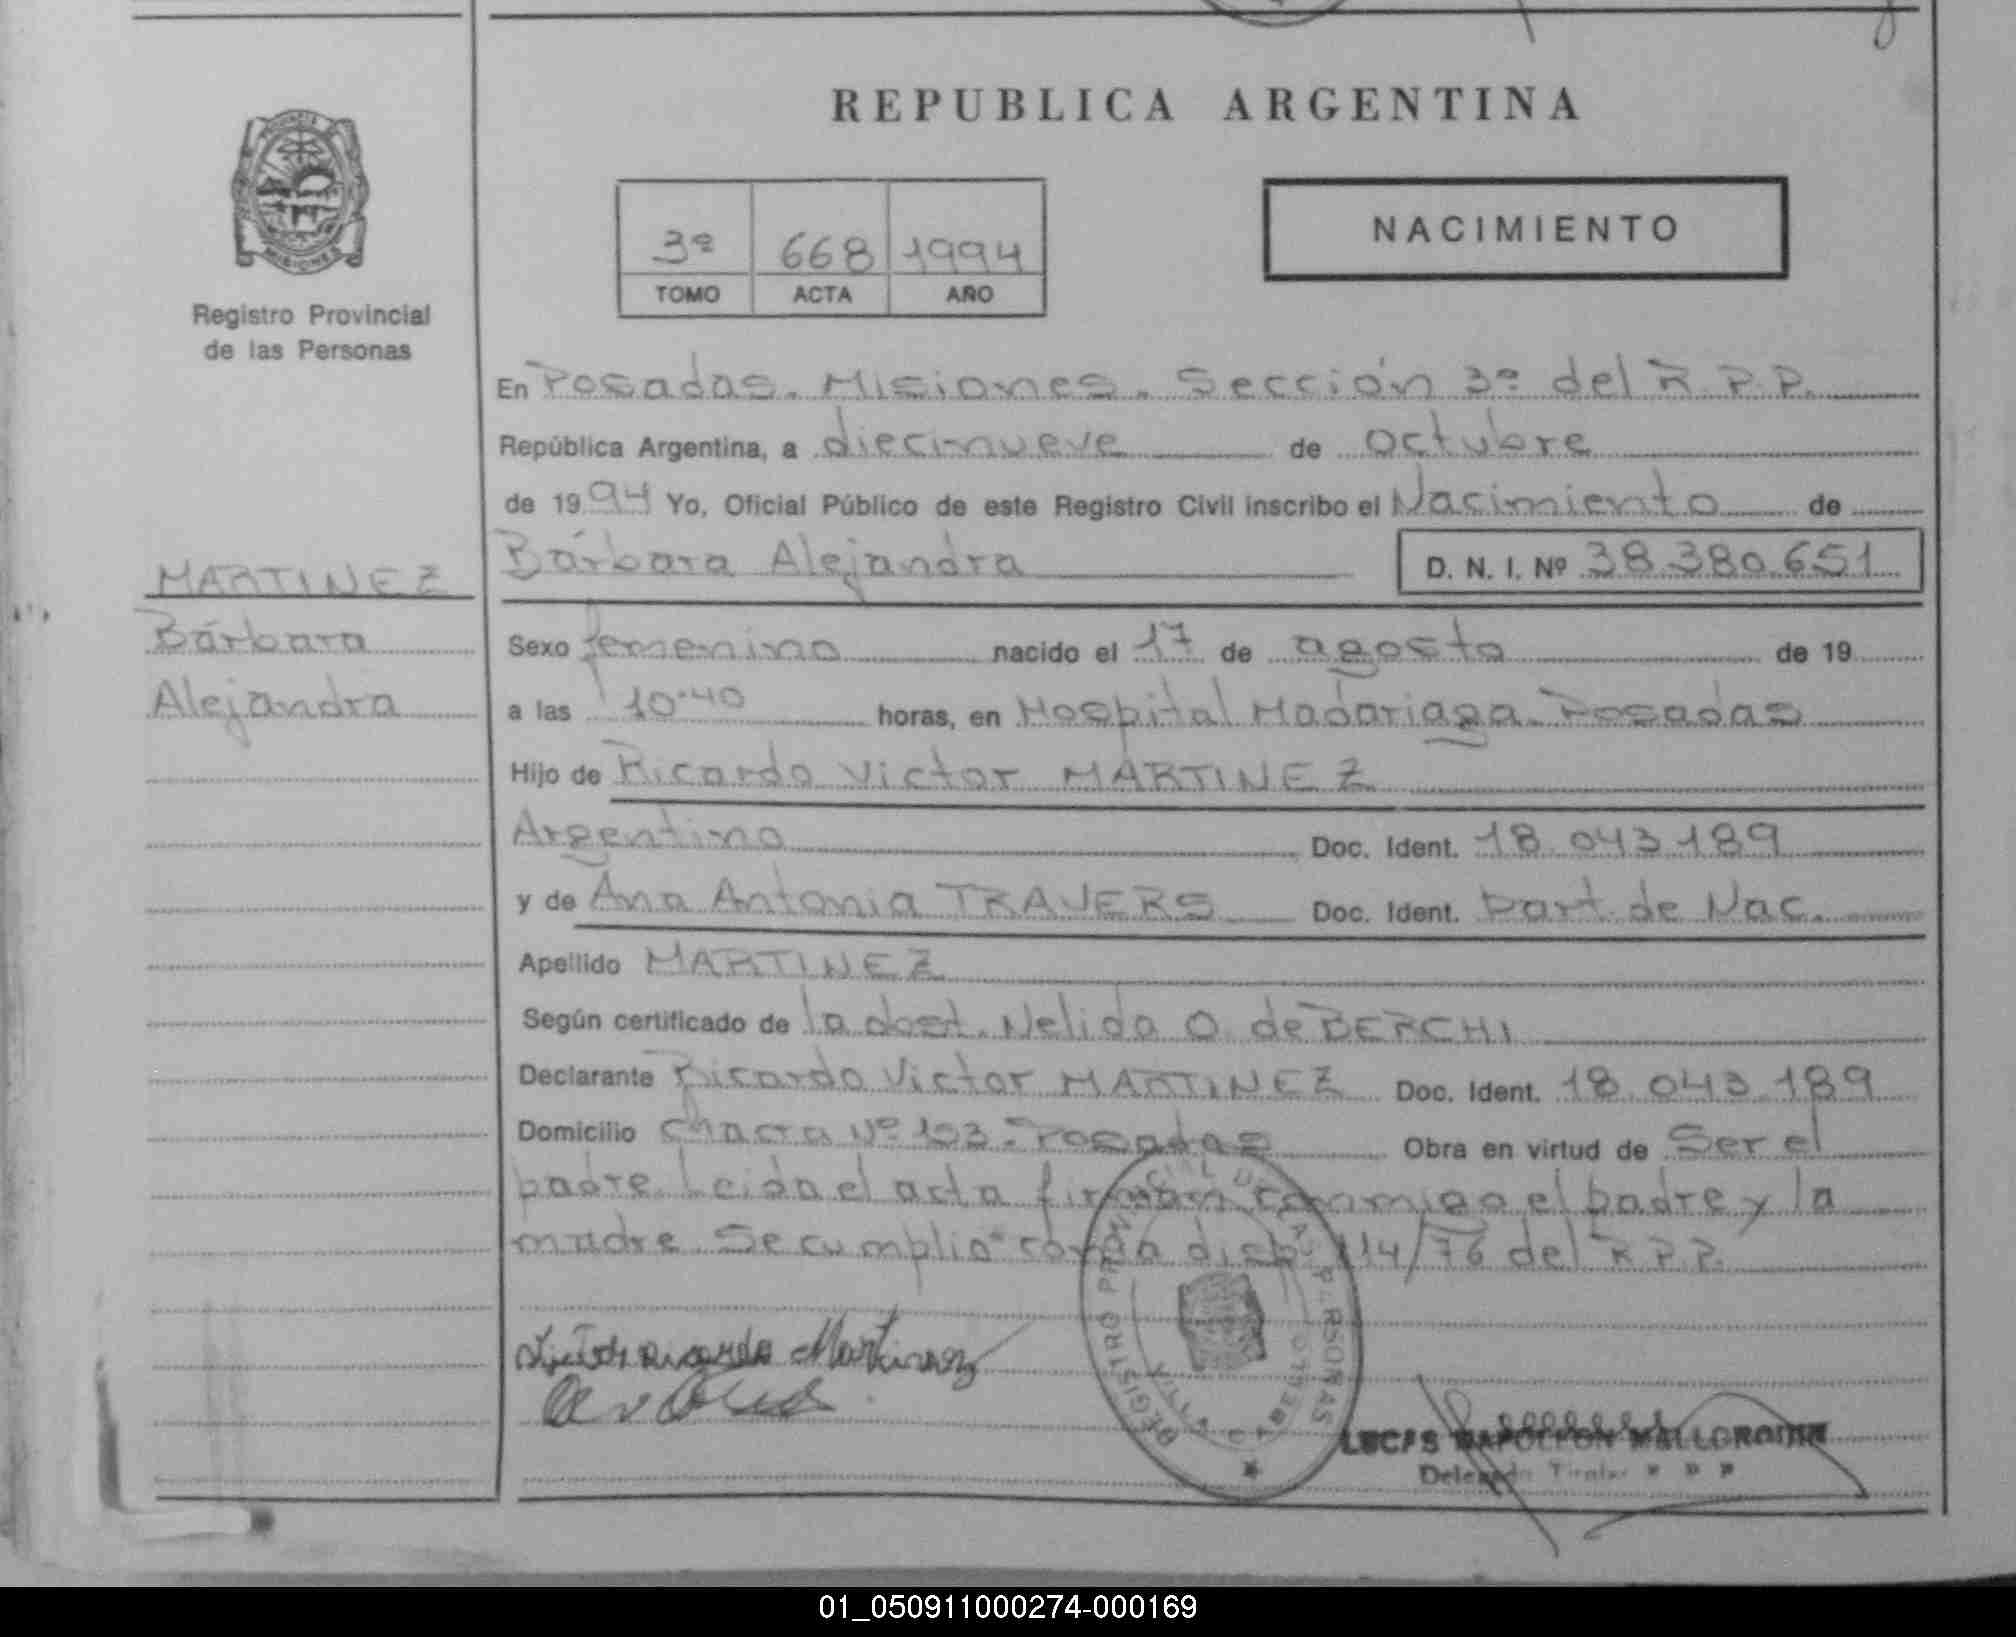 REPUBLICA ARGENTINA
PROVINCIA DE MISIONES
Registro Provincial
de las Personas
NACIMIENTO
3º 668 1994
TOMO ACTA AÑO
En Posadas. Misiones. Sección 3º del R.P.P.
República Argentina, a diecinueve de octubre
de 1994 Yo, Oficial Público de este Registro Civil inscribo el Nacimiento de
Bárbara Alejandra D. N. I. Nº 38.380.651
MARTINEZ
Bárbara
Alejandra
Sexo femenino nacido el 17 de agosto de 19
a las 10.40 horas, en Hospital Madariaga. Posadas
Hijo de Ricardo Victor MARTINEZ
Argentino Doc. Ident. 18.043.189
y de Ana Antonia TRAVERS Doc. Ident. part. de Nac.
Apellido MARTINEZ
Según certificado de la obst. Nelida O. de BERCHI
Declarante Ricardo Victor MARTINEZ Doc. Ident. 18.043.189
Domicilio Chacra Nº 103. Posadas Obra en virtud de Ser el
padre. Leida el acta firman conmigo el padre y la
madre. Se cumplio con la disp. 114/76 del R.P.P.
Ricardo Martinez
REGISTRO PROVINCIAL DE LAS PERSONAS
Delegado Titular
01_050911000274-000169